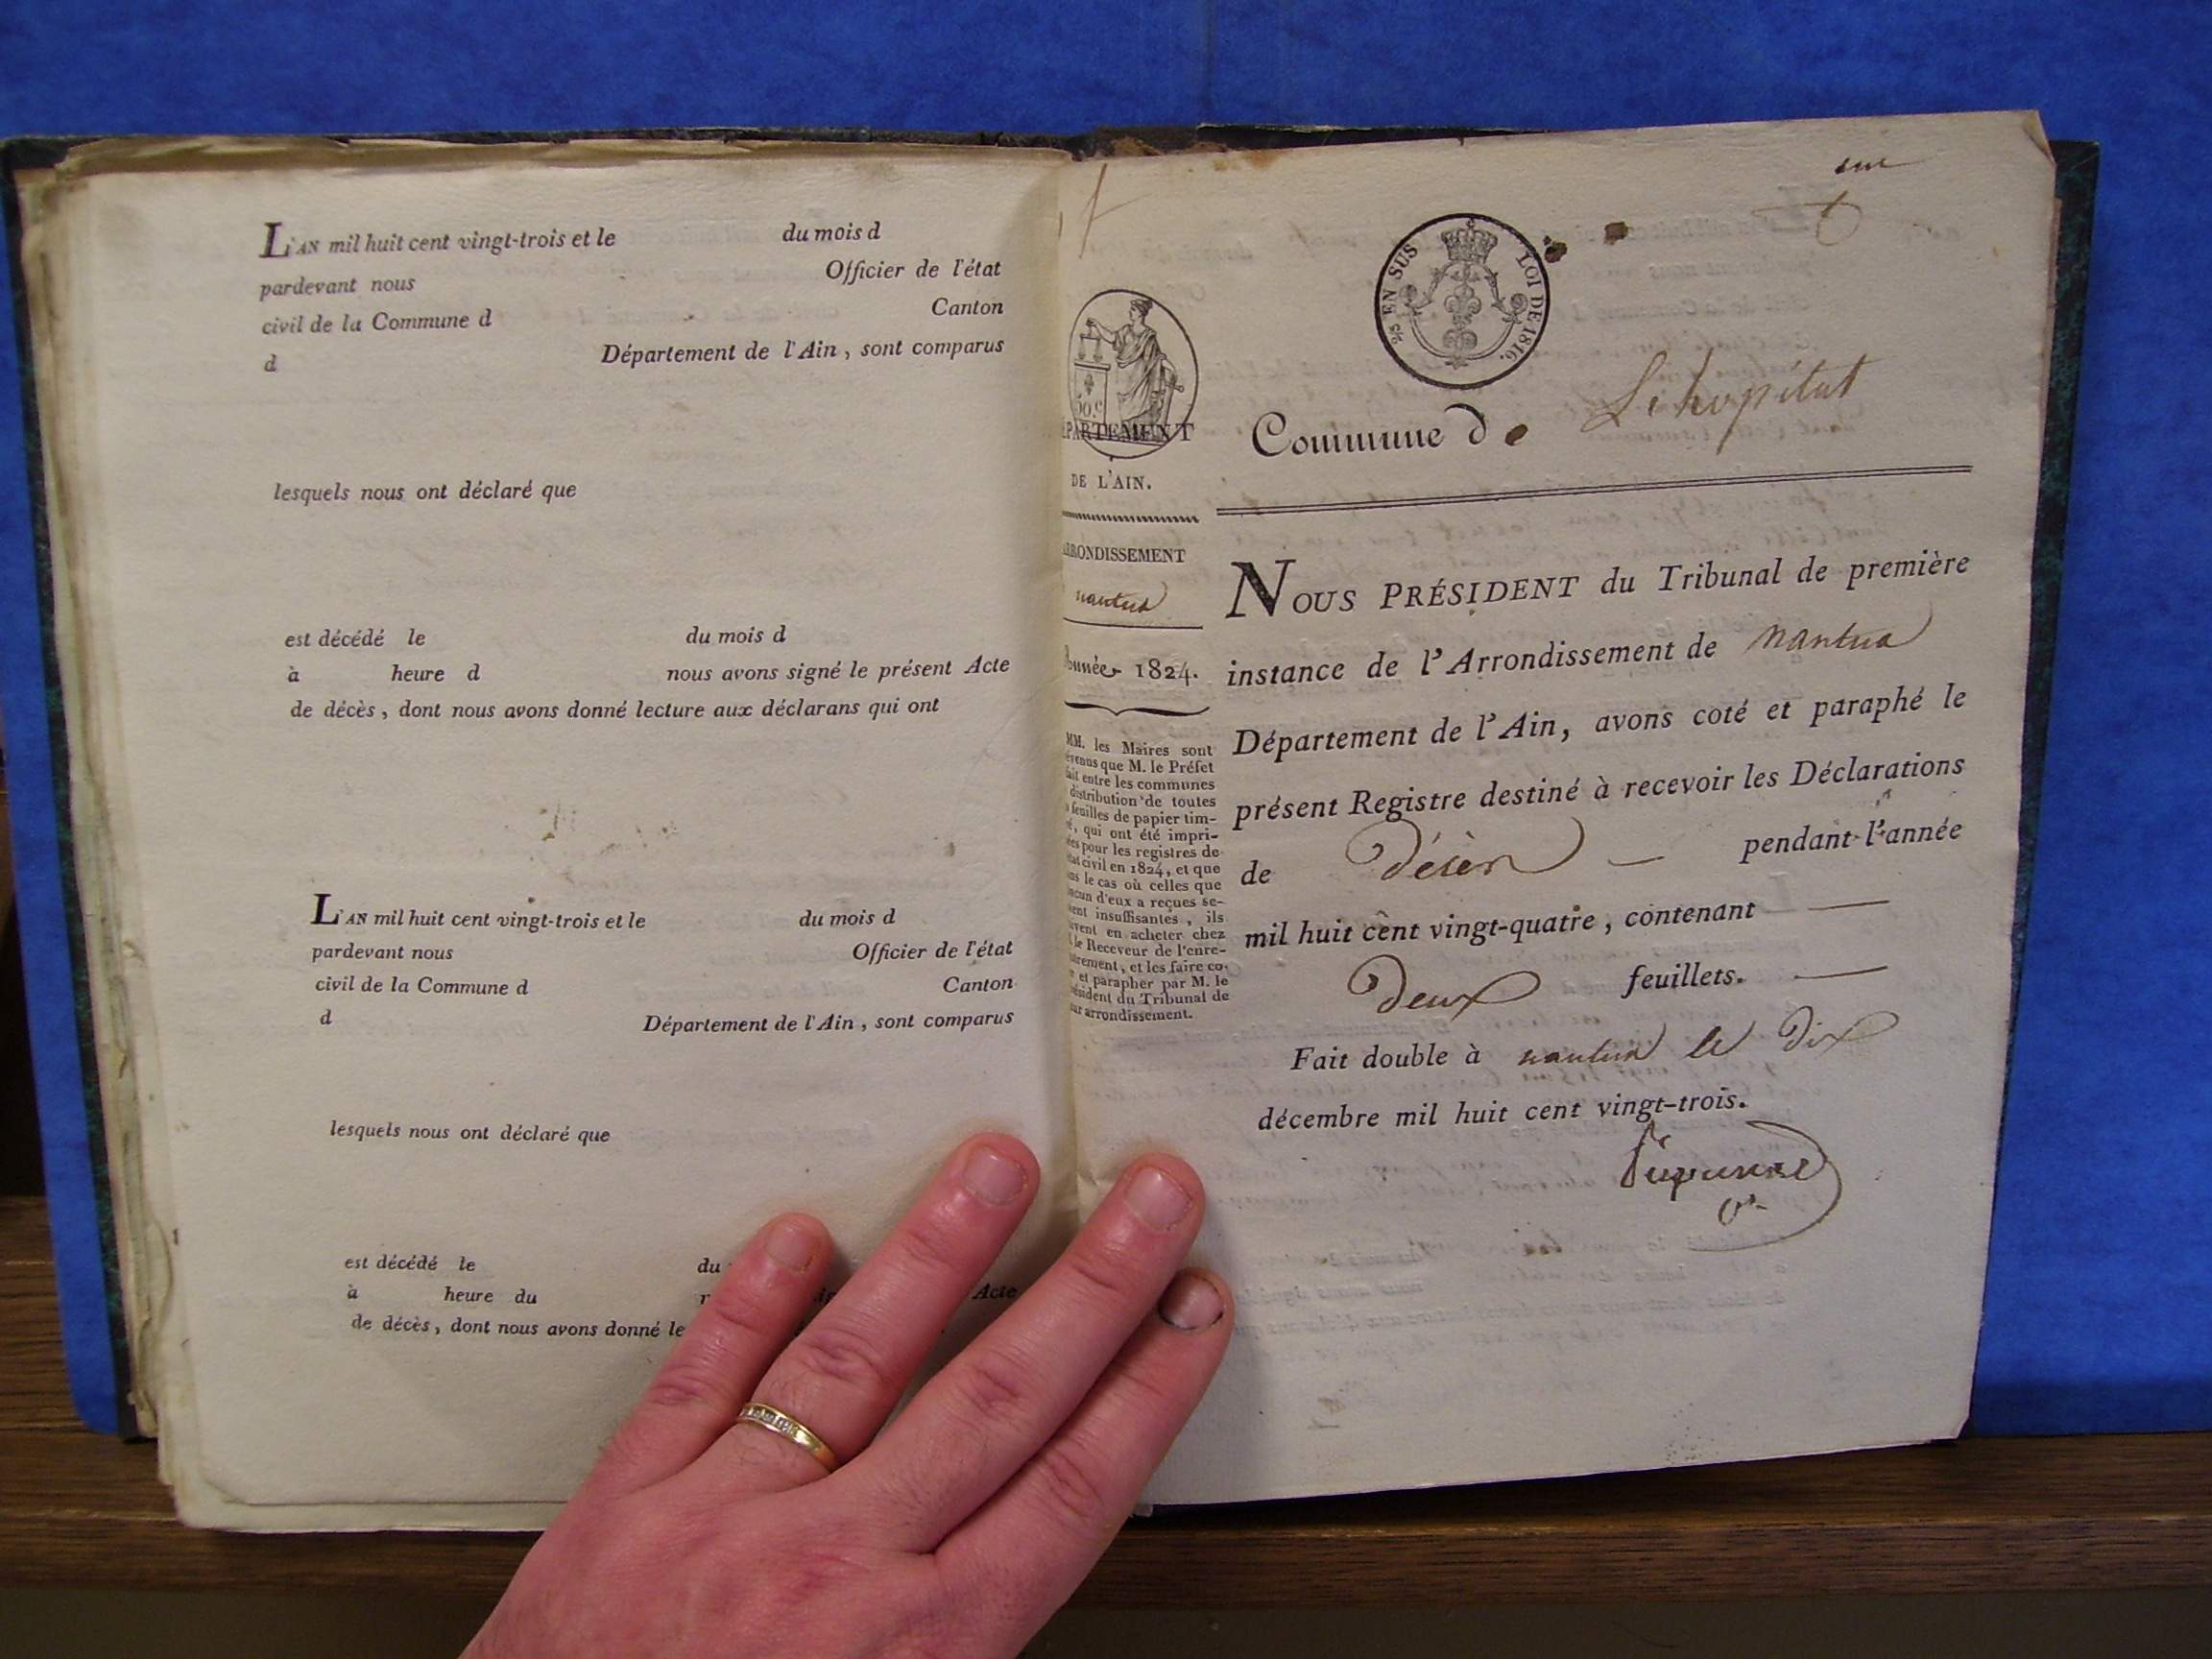 L'AN mil huit cent vingt-trois et le du mois d
pardevant nous Officier de l'état
civil de la Commune d Canton
d Département de l'Ain, sont comparus
lesquels nous ont déclaré que
est décédé le du mois d
à heure d nous avons signé le présent Acte
de décès, dont nous avons donné lecture aux déclarans qui ont
L'AN mil huit cent vingt-trois et le du mois d
pardevant nous Officier de l'état
civil de la Commune d Canton
d Département de l'Ain, sont comparus
lesquels nous ont déclaré que
est décédé le du
à heure du Acte
de décès, dont nous avons donné le
EN SUS LOI DE 1816.
50.c
PARTEMENT
DE L'AIN.
RRONDISSEMENT
nantua
Année 1824.
MM. les Maires sont
venus que M. le Préfet
fait entre les communes
distribution de toutes
feuilles de papier tim-
é, qui ont été impri-
ées pour les registres de
état civil en 1824, et que
ns le cas où celles que
cun d'eux a reçues se-
ent insuffisantes, ils
vent en acheter chez
le Receveur de l'enre-
trement, et les faire co-
r et parapher par M. le
ésident du Tribunal de
ur arrondissement.
Commune de Lhopital
NOUS PRÉSIDENT du Tribunal de première
instance de l'Arrondissement de nantua
Département de l'Ain, avons coté et paraphé le
présent Registre destiné à recevoir les Déclarations
de Décès pendant l'année
mil huit cent vingt-quatre, contenant
Deux feuillets.
Fait double à nantua le Dix
décembre mil huit cent vingt-trois.